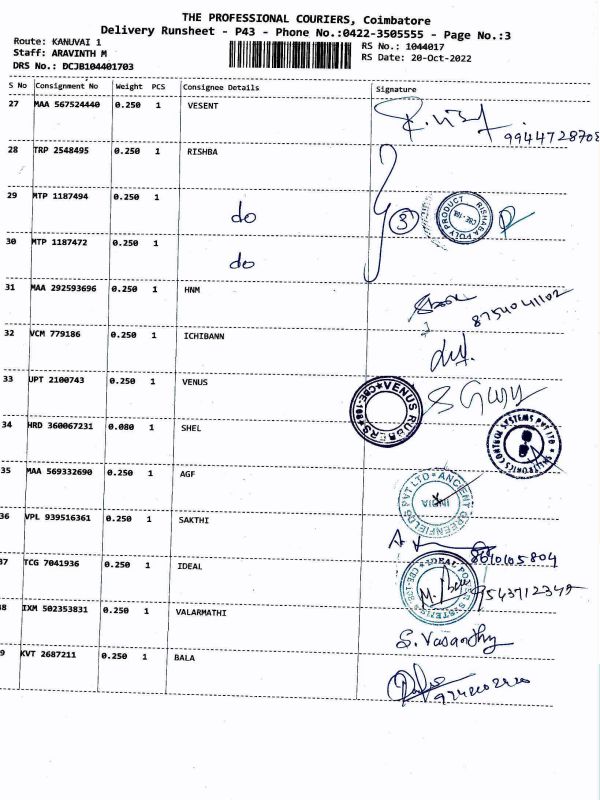 THE PROFESSIONAL COURIERS, Coimbatore
Delivery Runsheet - P43 - Phone No.:0422-3505555 - Page No.:3
Route: KANUVAI 1
Staff: ARAVINTH M
DRS No.: DCJB104401703
RS No.: 1044017
RS Date: 20-Oct-2022
S No Consignment No Weight PCS Consignee Details Signature
27 MAA 567524440 0.250 1 VESENT
9944728708
28 TRP 2548495 0.250 1 RISHBA
29 MTP 1187494 0.250 1 do
3 RISHABA POLY PRODUCT
30 MTP 1187472 0.250 1 do
31 MAA 292593696 0.250 1 HNM
8754041102
32 VCM 779186 0.250 1 ICHIBANN
33 UPT 2100743 0.250 1 VENUS
VENUS RUBBERS
34 HRD 360067231 0.080 1 SHEL
CONTROL SYSTEMS PVT LTD
35 MAA 569332690 0.250 1 AGF
ANCIENT GREENFIELDS PVT LTD
INDIA
36 VPL 939516361 0.250 1 SAKTHI
8610105804
37 TCG 7041936 0.250 1 IDEAL
IDEAL
38 IXM 502353831 0.250 1 VALARMATHI
S. Vasanthy
39 KVT 2687211 0.250 1 BALA